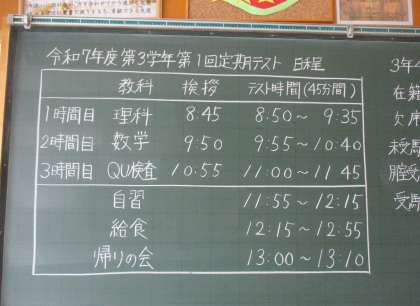 令和7年度第3学年第1回定期テスト 日程
教科 挨拶 テスト時間(45分間)
1時間目 理科 8:45 8:50～9:35
2時間目 数学 9:50 9:55～10:40
3時間目 QU検査 10:55 11:00～11:45
自習 11:55～12:15
給食 12:15～12:55
帰りの会 13:00～13:10
3年
在籍
欠席